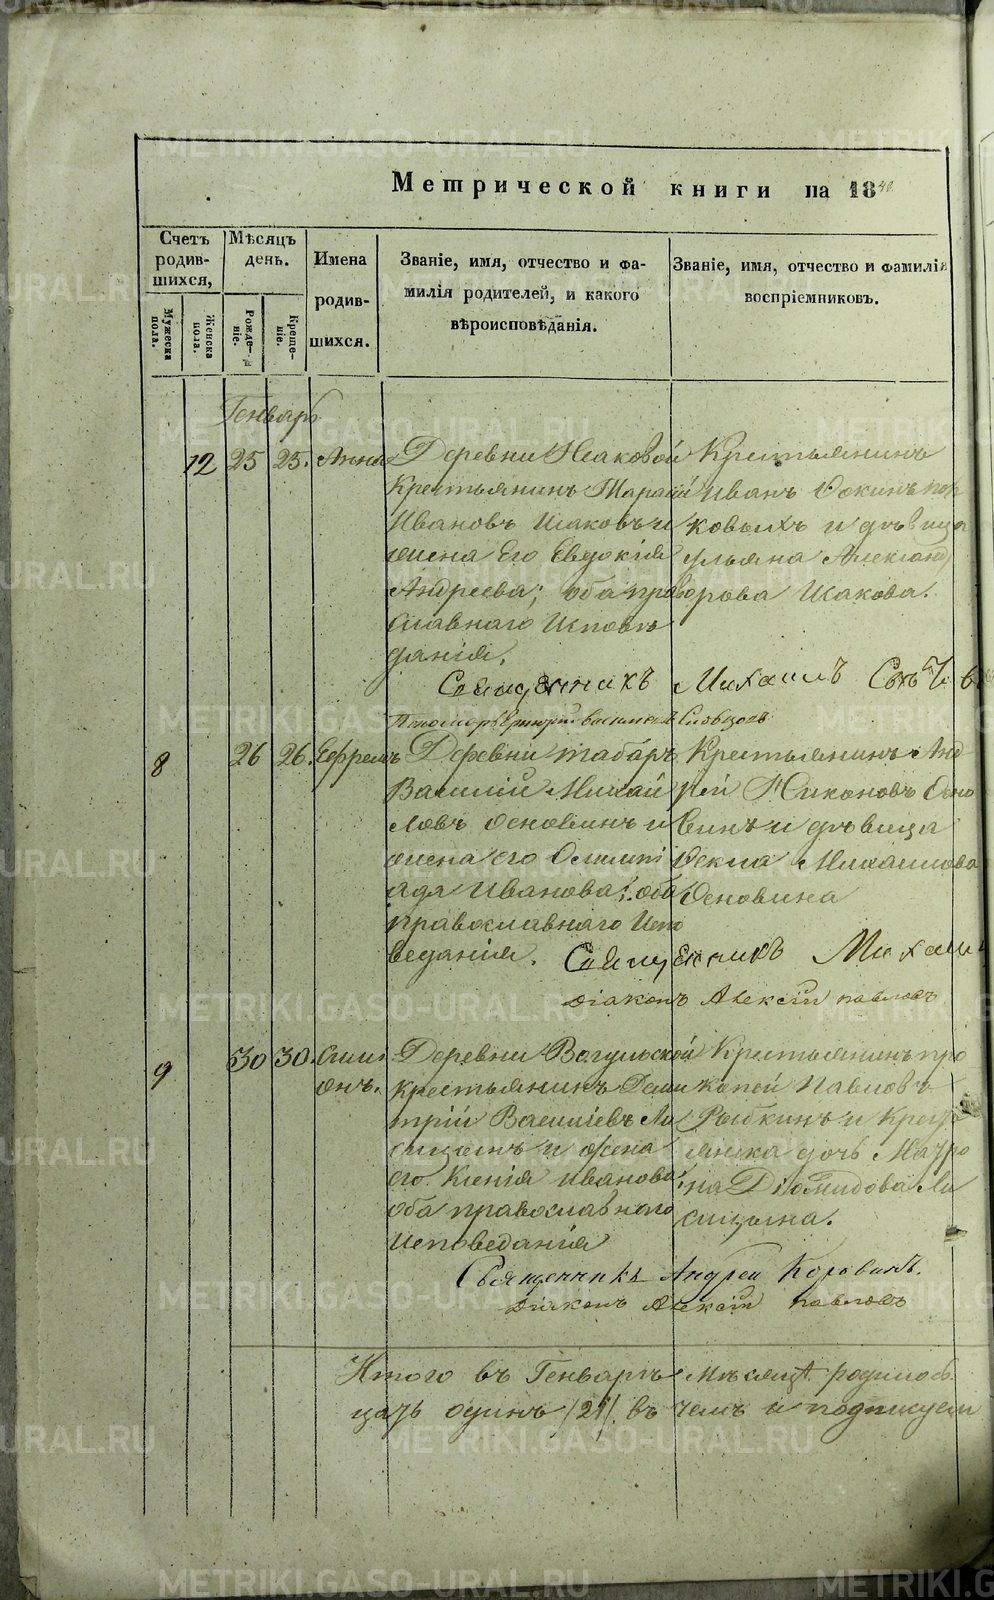 Метрической книги на 1840
Счетъ родив-шихся,
Мужеска пола.
Женска пола.
Мѣсяцъ день.
Рожде-ніе.
Креще-ніе.
Имена родив-шихся.
Званіе, имя, отчество и фа-
милія родителей, и какого
вѣроисповѣданія.
Званіе, имя, отчество и фамилія
воспріемниковъ.
Генварь
12 25 25. Анна
Деревни Исаковой
Крестьянинъ Тарасій
Ивановъ Исаковъ и
жена Его Евдокія
Андреева; оба право
славнаго Исповѣ
данія.
Крестьянинъ
Иванъ
ковыхъ и дѣвица
ульяна Александ
рова Исакова.
Священникъ Михаилъ
Пономарь василей Словцовъ
8 26 26. Ефремъ
Деревни табаръ
Василій Михай
ловъ Основинъ и
жена его Олимпі
ада Иванова; оба
православнаго Испо
веданія.
Крестьянинъ Анд
рей Никоновъ Осно
винъ и дѣвица
Фекла Михаилова
Основина
Священникъ Михаилъ
Діаконъ Алексій павловъ
9 30 30. Сими
онъ.
Деревни Вагульской
Крестьянинъ Дими
трій Васильевъ Ли
сицынъ и жена
его Ксенія иванова;
оба православнаго
Исповеданія
Крестьянинъ про
копей Павловъ
Рыбкинъ и Кресть
янска дочь Матро
на Диомидова Ли
сицына.
Священникъ Андрей Коровинъ.
Діаконъ Алексій павловъ
Итого въ Генварѣ Мѣсяцѣ родилось
цать одинъ /21/. въ чемъ и подписуем
METRIKI.GASO-URAL.RU